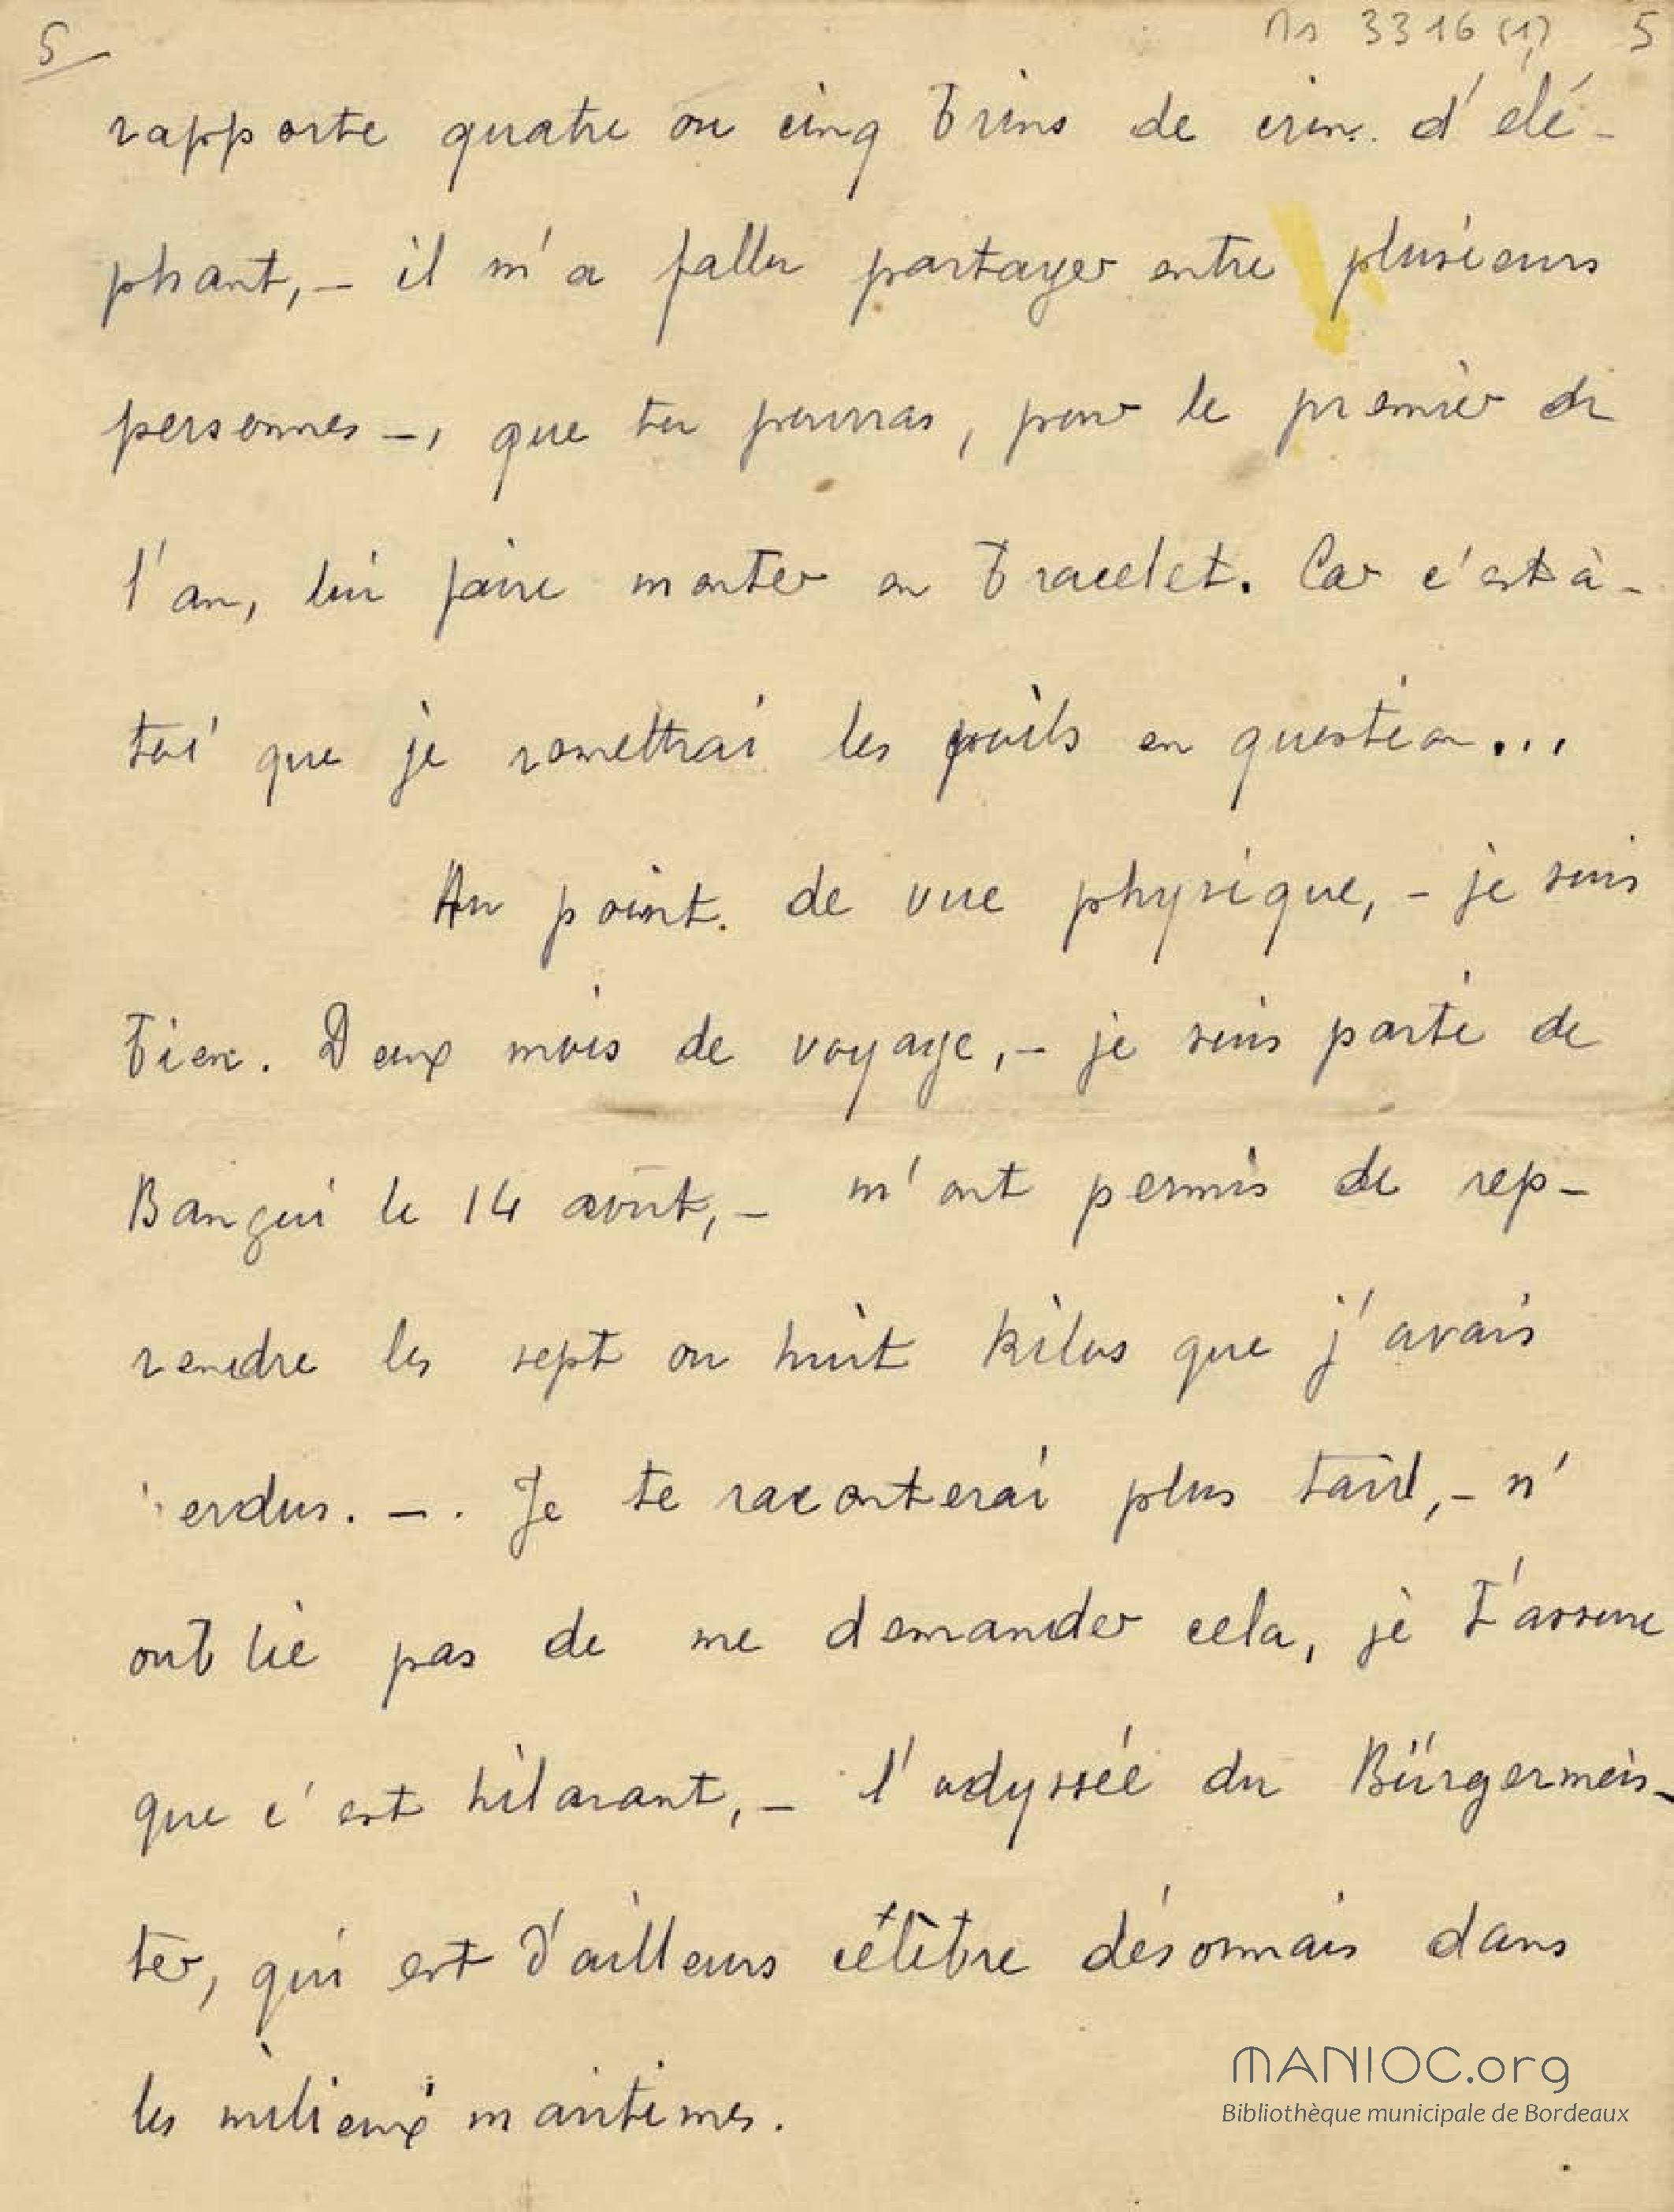 5 Ms 3316 (1) 5
rapporte quatre ou cinq brins de crin d'élé-
phant, - il m'a fallu partager entre plusieurs
personnes -, que tu pourras, pour le premier de
l'an, lui faire monter en bracelet. Car c'est à-
toi que je remettrai les poils en question...
Au point de vue physique, - je suis
bien. Deux mois de voyage, - je suis parti de
Bangui le 14 août, - m'ont permis de rep-
rendre les sept ou huit kilos que j'avais
perdus. - . Je te raconterai plus tard, - n'
oublie pas de me demander cela, je t'assure
que c'est hilarant, - l'odyssée du Bürgermeis-
ter, qui est d'ailleurs célèbre désormais dans
les milieux maritimes.
MANIOC.org
Bibliothèque municipale de Bordeaux